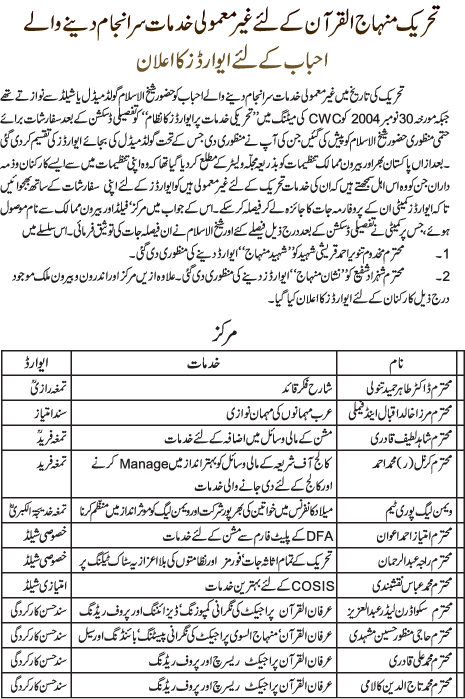 تحریک منہاج القرآن کے لئے غیر معمولی خدمات سرانجام دینے والے
احباب کے لئے ایوارڈز کا اعلان
تحریک کی تاریخ میں غیر معمولی خدمات سرانجام دینے والے احباب کو حضور شیخ الاسلام گولڈ میڈل یا شیلڈ سے نوازتے تھے
جبکہ مورخہ 30 نومبر 2004 کو CWC کی میٹنگ میں ’’تحریکی خدمات پر ایوارڈز کا نظام‘‘ کو تفصیلی ڈسکشن کے بعد سفارشات برائے
حتمی منظوری حضور شیخ الاسلام کو پیش کی گئیں جن کی آپ نے منظوری دی جس کے تحت گولڈ میڈل کی بجائے ایوارڈز کی تقسیم کر دی گئی
۔ بعد ازاں پاکستان بھر اور بیرون ممالک تنظیمات کو بذریعہ مجلّہ و لیٹر کے مطلع کر دیا گیا تھا کہ وہ اپنی تنظیمات میں سے ایسے کارکنان و ذمہ
داران جن کو وہ اس اہل سمجھتے ہیں کہ ان کی خدمات تحریک کے لئے غیر معمولی ہیں کو ایوارڈز کے لئے اپنی سفارشات کے ساتھ بھجوائیں
تاکہ ایوارڈز کمیٹی ان کے پروفارمہ جات کا جائزہ لے کر فیصلہ کر سکے۔ اس کے جواب میں مرکز، فیلڈ اور بیرون ممالک سے نام موصول
ہوئے، جس پر کمیٹی نے تفصیلی ڈسکشن کے بعد درج ذیل فیصلے کئے اور شیخ الاسلام نے ان فیصلہ جات کی توثیق فرمائی۔ اس سلسلے میں
1۔ محترم مخدوم تنویر احمد قریشی شہید کو ’’شہید منہاج‘‘ ایوارڈ دینے کی منظوری دی گئی۔
2۔ محترم شہزاد شفیع کو ’’نشان منہاج‘‘ ایوارڈ دینے کی منظوری دی گئی۔ علاوہ ازیں مرکز اور اندرون و بیرون ملک موجود
درج ذیل کارکنان کے لئے ایوارڈز کا اعلان کیا گیا۔
مرکز
نام خدمات ایوارڈ
محترم ڈاکٹر طاہر حمید تنولی شارح فکر قائد تمغہ رازیؒ
محترم مرزا خالد اقبال اینڈ فیملی عرب مہمانوں کی مہمان نوازی سند امتیاز
محترم شاہد لطیف قادری مشن کے مالی وسائل میں اضافہ کے لئے خدمات تمغہ فریدؒ
محترم کرنل (ر) محمد احمد کالج آف شریعہ کے مالی وسائل کو بہتر انداز میں Manage کرنے تمغہ فرید
اور کالج کے لئے دی جانے والی خدمات
ویمن لیگ پوری ٹیم میلاد کانفرنس میں خواتین کی بھرپور شرکت اور ویمن لیگ کو موثر انداز میں منظم کرنا تمغہ خدیجۃ الکبریٰؓ
محترم امتیاز احمد اعوان DFA کے پلیٹ فارم سے مشن کے لئے خدمات خصوصی شیلڈ
محترم راجہ عبدالرحمان تحریک کے تمام اثاثہ جات، فورمز اور نظامتوں کی بلا اعزازیہ سٹاک ٹیکنگ پر خصوصی شیلڈ
محترم محمد عباس نقشبندی COSIS کے لئے بہترین خدمات امتیازی شیلڈ
محترم سکواڈرن لیڈر عبدالعزیز عرفان القرآن پراجیکٹ کی نگرانی کمپوزنگ، ڈیزائننگ اور پروف ریڈنگ سند حسن کارکردگی
محترم حاجی منظور حسین مشہدی عرفان القرآن، منہاج السوی پراجیکٹ کی نگرانی پیسٹنگ، بائنڈنگ اور سیل سند حسن کارکردگی
محترم محمد علی قادری عرفان القرآن پراجیکٹ ریسرچ اور پروف ریڈنگ سند حسن کارکردگی
محترم محمد تاج الدین کالامی عرفان القرآن پراجیکٹ ریسرچ اور پروف ریڈنگ سند حسن کارکردگی